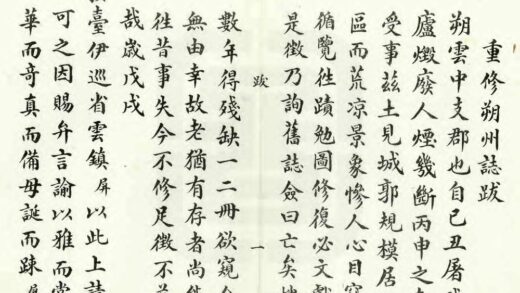 重修朔州誌跋
朔雲中支郡也自己丑屠
廬燬廢人煙幾斷丙申之
受事茲土見城郭規模居
區而荒凉景象慘人心目
循覽徃蹟勉圖修復必文
是徵乃詢舊誌僉曰亡矣
跋
一
數年得殘缺一二冊欲窺
無由幸故老猶有存者尚
徃昔事失今不修足徵不
哉歲戊戌
臺伊巡省雲鎮屏以此上
可之因賜弁言諭以雅而
華而竒真而備毋誕而踈